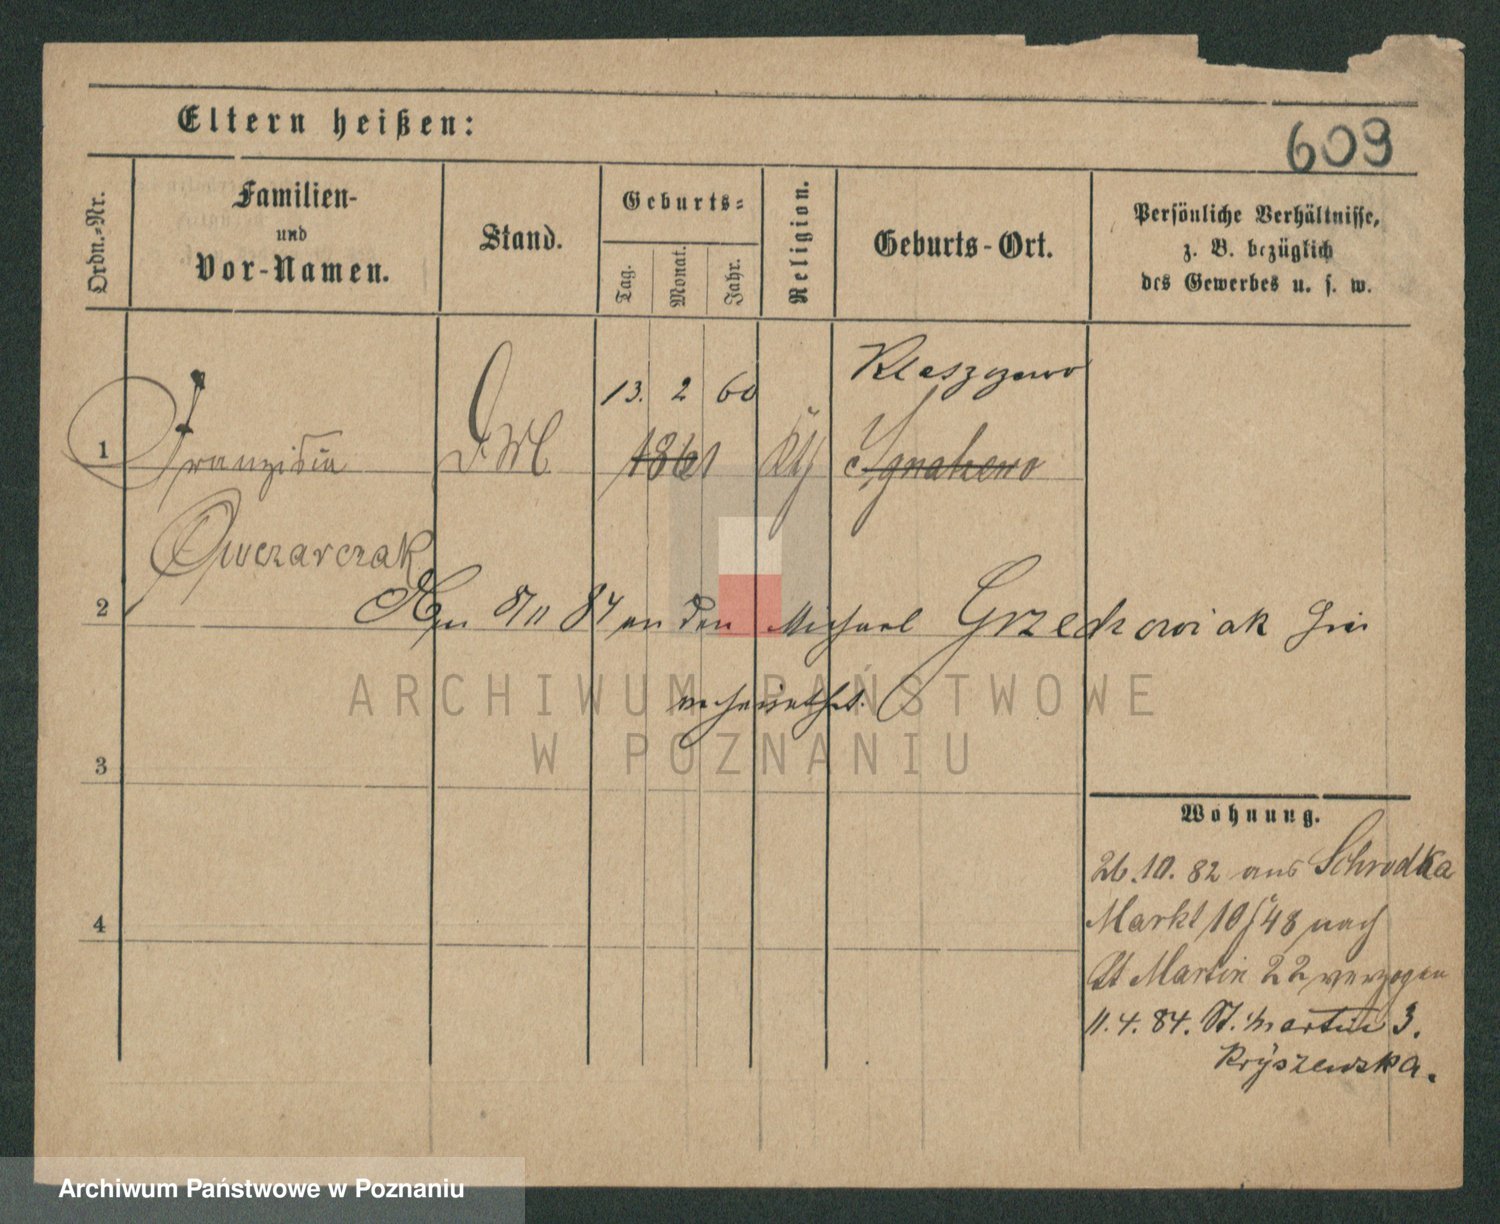 Eltern heißen:
609
Ordn.-Nr.
Familien-
und
Vor-Namen.
Stand.
Geburts-
Tag.
Monat.
Jahr.
Religion.
Geburts-Ort.
Persönliche Verhältnisse,
z. B. bezüglich
des Gewerbes u. s. w.
13. 2 60
1
Franziska
D.M.
1861
Owczarczak
2
Am 8/11 84 an den Michael Grzechowiak hier
verheirathet.
ARCHIWUM PAŃSTWOWE
W POZNANIU
3
4
Wohnung.
26. 10. 82 aus Schrodka
Markt 10/48 nach
St Martin 22 verzogen
11. 4. 84. St. Martin 3.
Ryszewska.
Archiwum Państwowe w Poznaniu